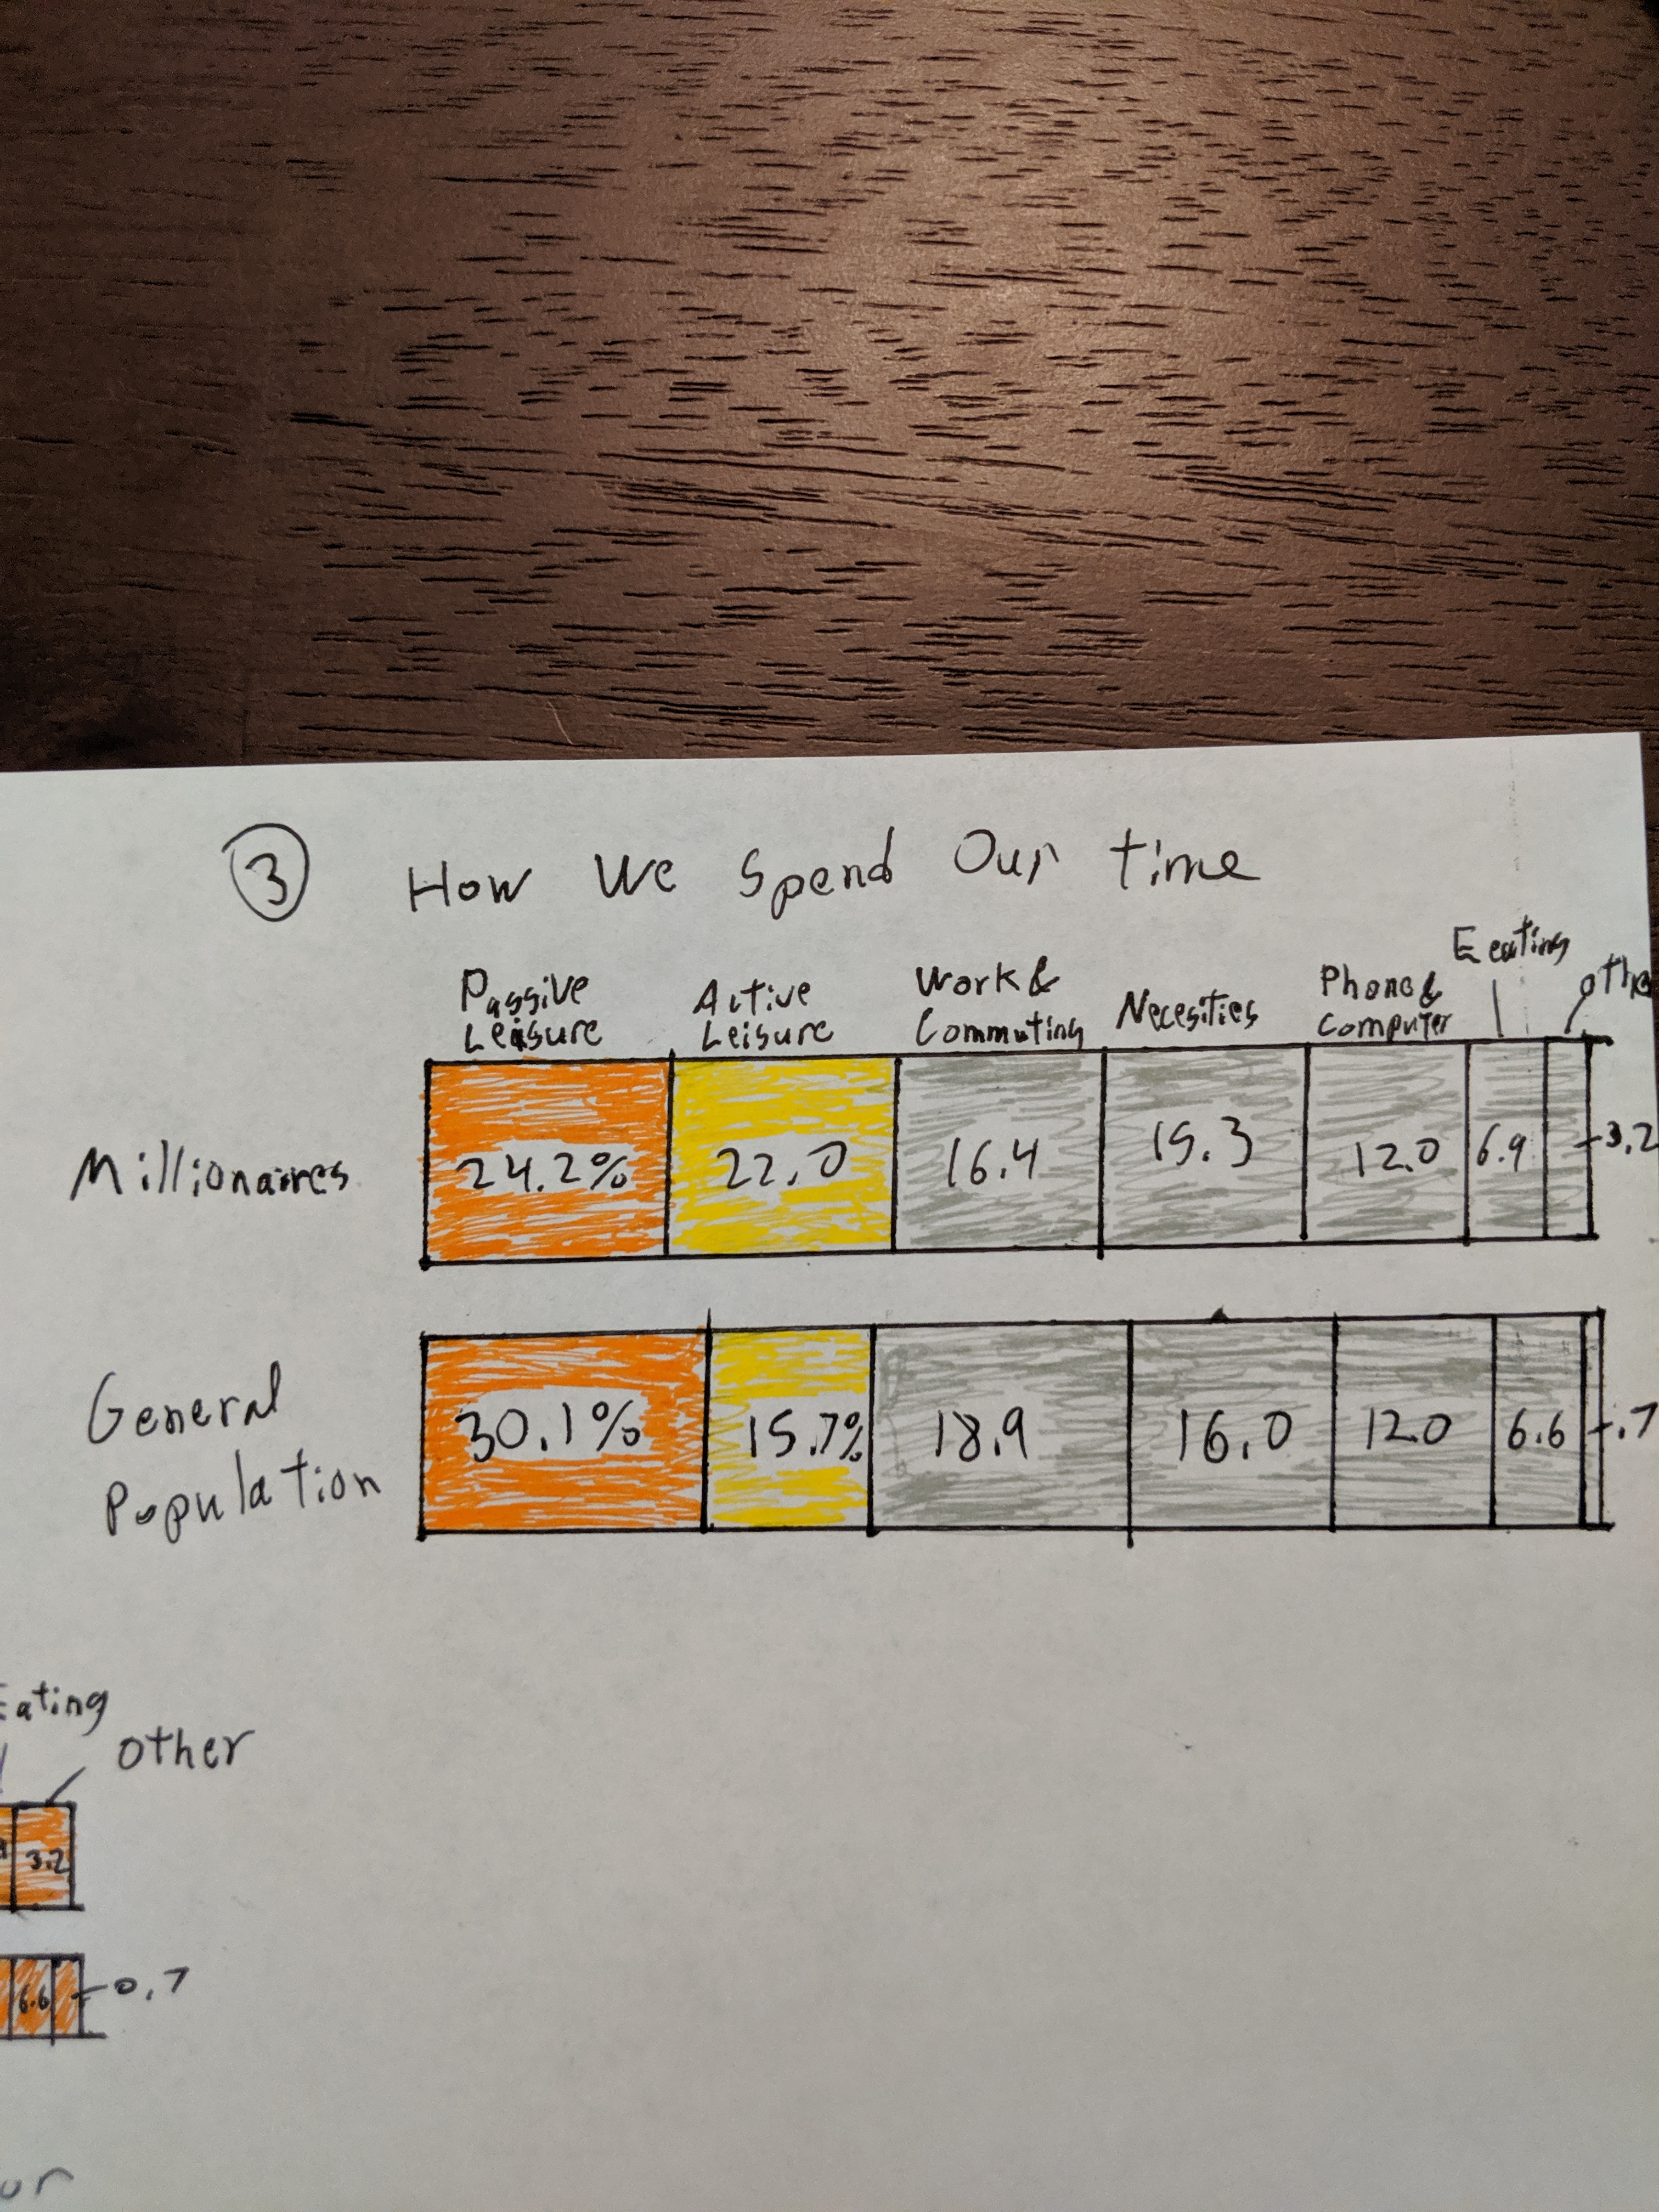 3 How We Spend Our time
Eeating
Passive Leisure
Active Leisure
Work & Commuting
Necesities
Phone & Computer
Millionaires
24.2%
22.0
16.4
15.3
12.0
6.9
3.2
General Population
30.1%
15.7%
18.9
16.0
12.0
6.6
.7
Eating
other
3.2
6.6
0.7